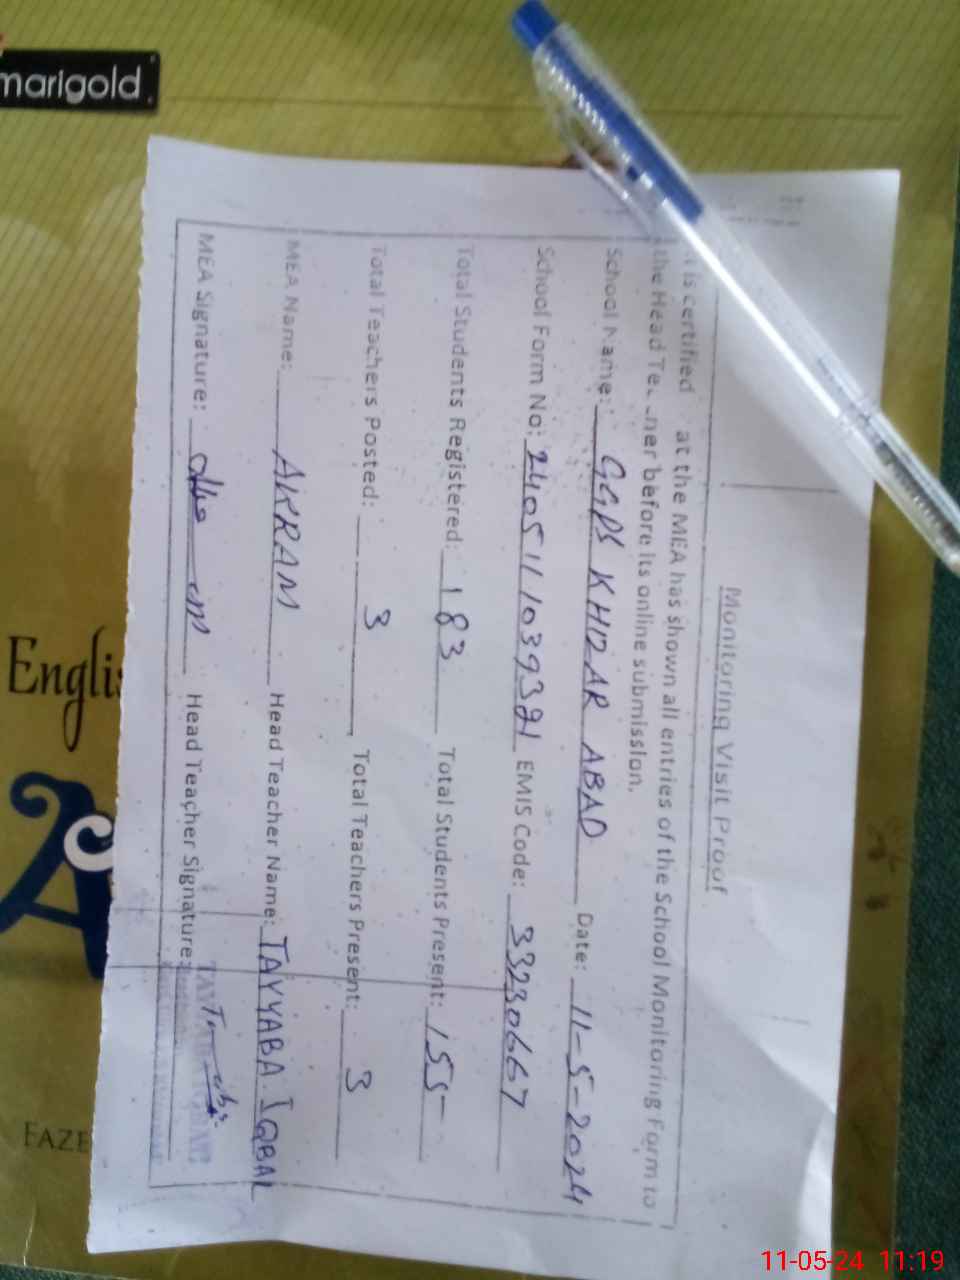 marigold
Monitoring Visit Proof
is certified at the MEA has shown all entries of the School Monitoring Form to
the Head before its online submission.
School Name: GGPS KHIZAR ABAD Date: 11-5-2024
School Form No: 2405111039321 EMIS Code: 33230667
Total Students Registered: 183 Total Students Present: 155
Total Teachers Posted: 3 Total Teachers Present: 3
MEA Name: AKRAM Head Teacher Name: TAYYABA IQBAL
MEA Signature: Head Teacher Signature:
Englis
FAZE
11-05-24 11:19